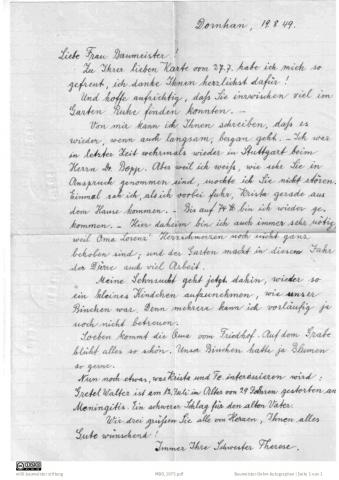 Dornhan, 19.8.49.
Liebe Frau Baumeister!
Zu Ihrer lieben Karte vom 27.7. habe ich mich so
gefreut, ich danke Ihnen herzlichst dafür!
Und hoffe aufrichtig, daß Sie inzwischen viel im
Garten Ruhe finden konnten. –
Von mir kann ich Ihnen schreiben, daß es
wieder, wenn auch langsam, bergan geht. – Ich war
in letzter Zeit mehrmals wieder in Stuttgart beim
Herrn Dr. Bopp. Aber weil ich weiß, wie sehr Sie in
Anspruch genommen sind, mochte ich Sie nicht stören.
Einmal sah ich, als ich vorbei fuhr, Krista gerade aus
dem Hause kommen. – Bis auf 74 ℔ bin ich wieder ge-
kommen. – Hier daheim bin ich auch immer sehr nötig
weil Oma Lorenz' Herzschmerzen noch nicht ganz
behoben sind, und der Garten macht in diesem Jahr
der Dürre auch viel Arbeit.
Meine Sehnsucht geht jetzt dahin, wieder so
ein kleines Kindchen aufzunehmen, wie unser
Binchen war. Denn mehrere kann ich vorläufig ja
noch nicht betreuen.
Soeben kommt die Oma vom Friedhof. Auf dem Grabe
blüht alles so schön. Unser Binchen hatte ja Blumen
so gerne.
Nun noch etwas, was Krista und Fe. interessieren wird:
Gretel Walter ist am 12. Juli im Alter von 29 Jahren gestorben an
Meningitis. Ein schwerer Schlag für den alten Vater.
Wir drei grüßen Sie alle von Herzen, Ihnen alles
Gute wünschend!
Immer Ihre Schwester Therese.
willi baumeister stiftung
Baumeister-Archiv Autographen | Seite 1 von 1